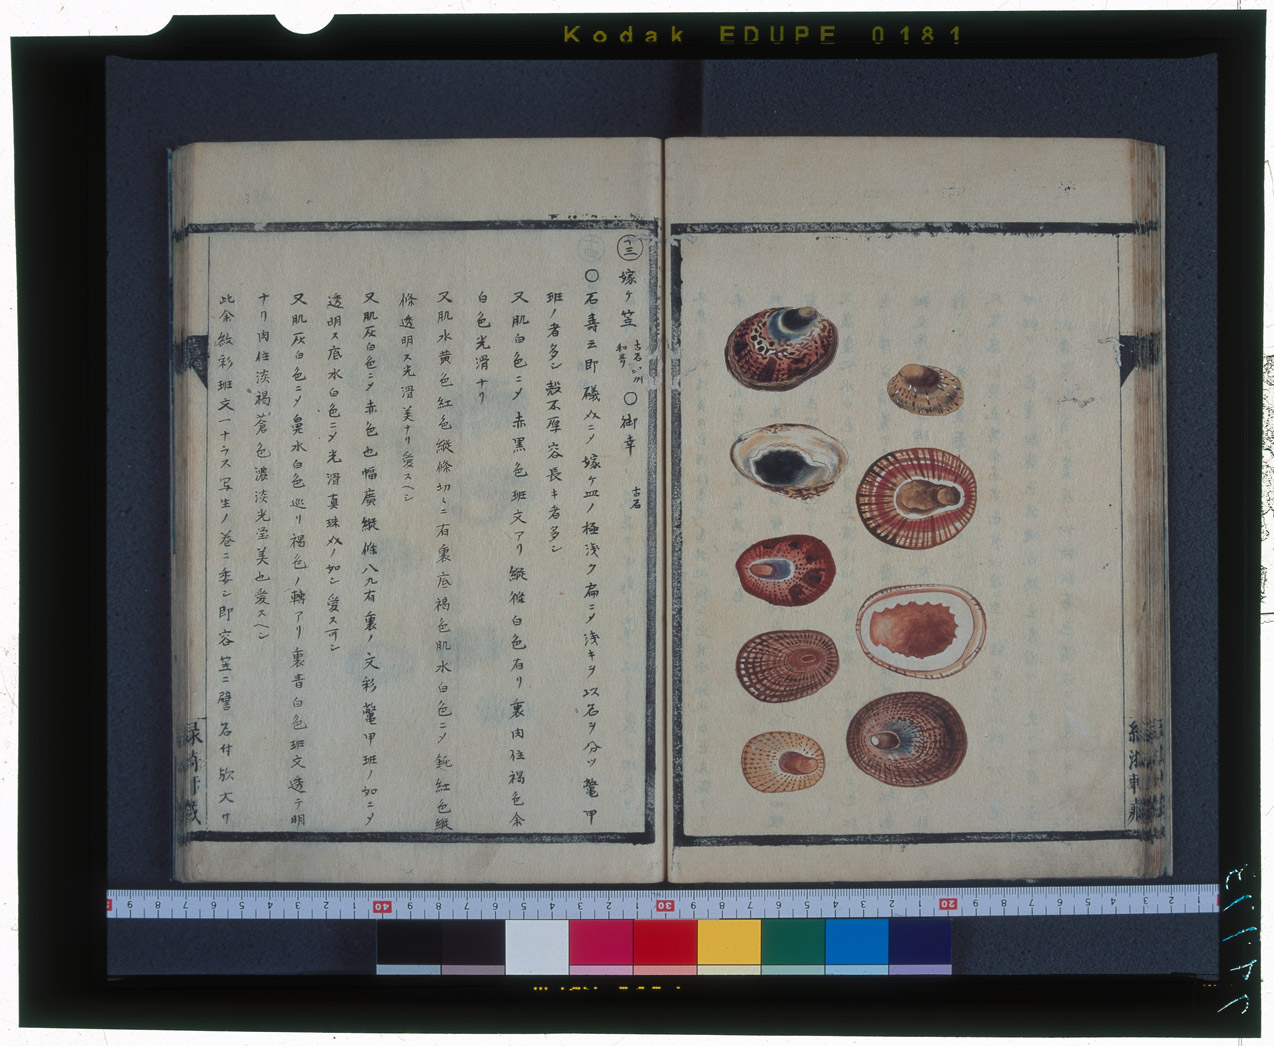 Kodak EDUPE 0181
十三 嫁ケ笠 古名 和哥 〇御幸 古名
〇石壽云即礒ノ嫁ケ皿ノ極浅ク扁ニメ浅キヲ以名ヲ分ツ鼈甲
班ノ者多シ殻不厚容長キ者多シ
又肌白色ニメ赤黒色班文アリ縦條白色有リ裏肉住褐色余
白色光滑ナリ
又肌水黄色紅色縦條切々ニ有裏底褐色肌水白色ニメ鈍紅色縦
條透明ス光滑美ナリ愛スヘシ
又肌灰白色ニメ赤色也幅廣縦條八九有裏ノ文彩鼈甲班ノ如ニメ
透明ス底水白色ニメ光滑真珠ノ如シ愛ス可シ
又肌灰白色ニメ鼻水白色巡リ褐色ノ轉アリ裏青白色班文透テ明
ナリ肉住淡褐蒼色濃淡光瑩美也愛スヘシ
此余紋彩班文一ナラス写生ノ巻ニ委シ即容笠ニ譬名付欤大サ
軒藏
軒藏
40 30 20